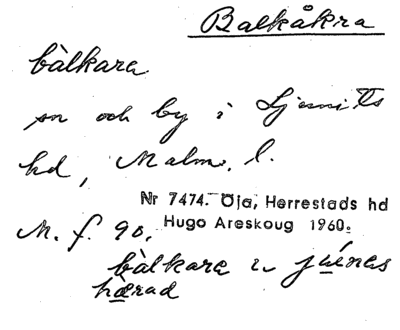 Balkåkra
bàlkara
sn och by i Ljunits
hd, Malm. l.
Nr 7474. Öja, Herrestads hd
Hugo Areskoug 1960.
M. f. 90.
bàlkara i
härad